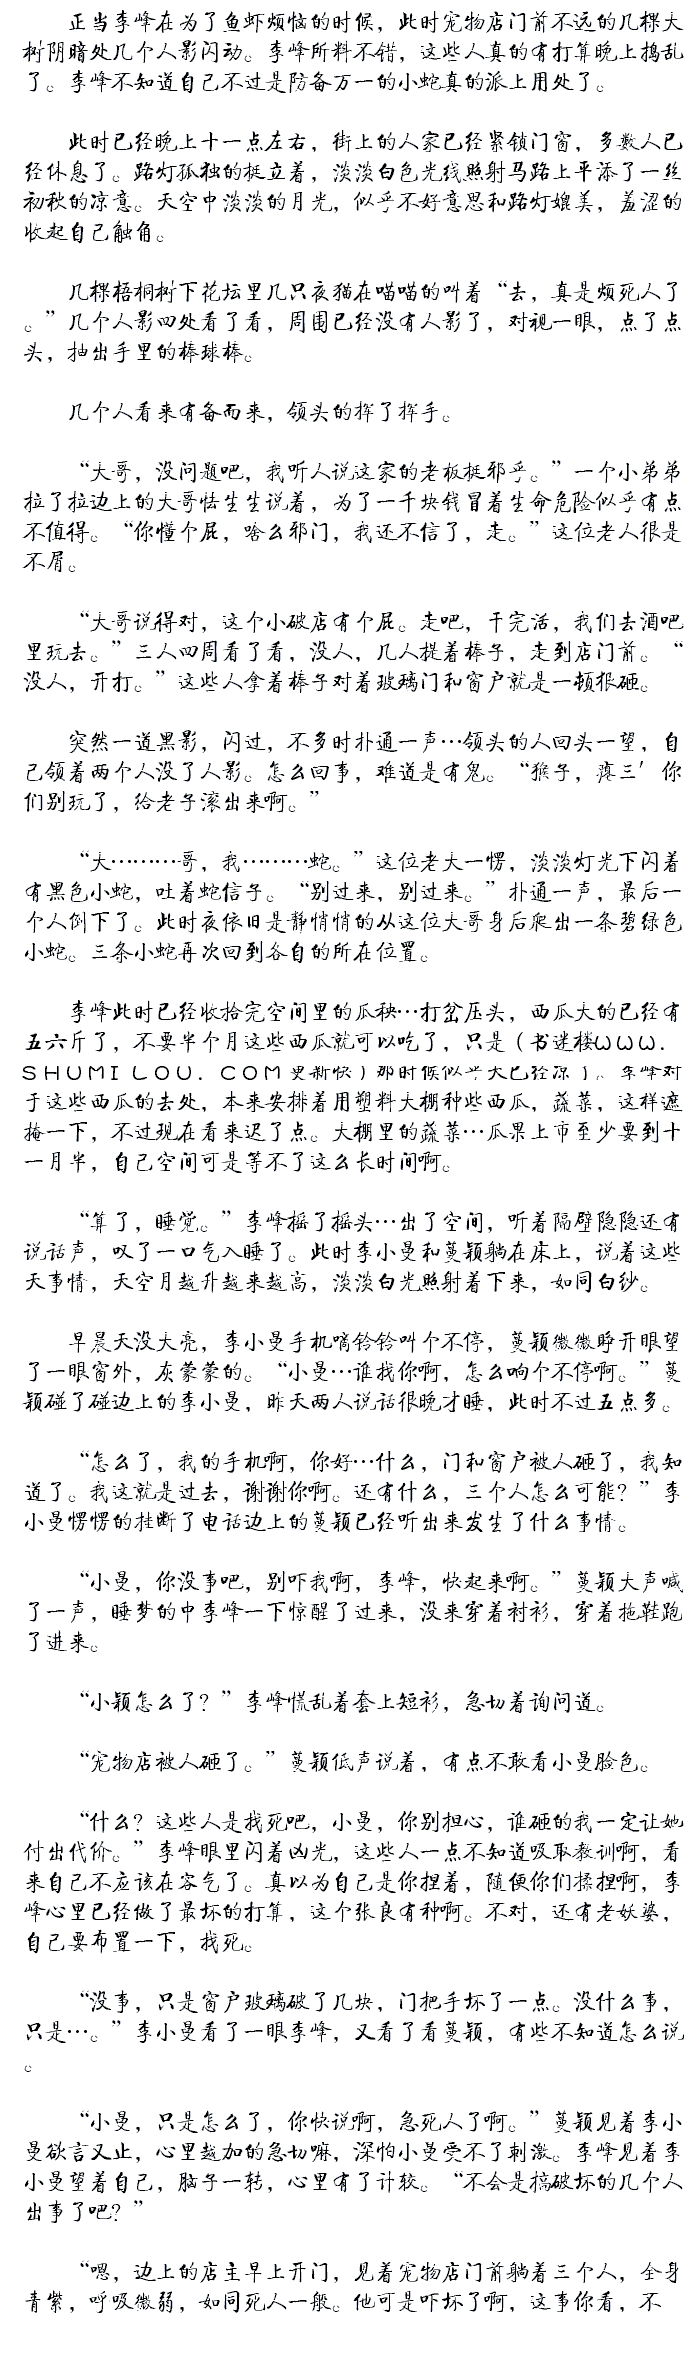 正当李峰在为了鱼虾烦恼的时候，此时宠物店门前不远的几棵大
树阴暗处几个人影闪动。李峰所料不错，这些人真的有打算晚上捣乱
了。李峰不知道自己不过是防备万一的小蛇真的派上用处了。
此时已经晚上十一点左右，街上的人家已经紧锁门窗，多数人已
经休息了。路灯孤独的挺立着，淡淡白色光线照射马路上平添了一丝
初秋的凉意。天空中淡淡的月光，似乎不好意思和路灯媲美，羞涩的
收起自己触角。
几棵梧桐树下花坛里几只夜猫在喵喵的叫着“去，真是烦死人了
。”几个人影四处看了看，周围已经没有人影了，对视一眼，点了点
头，抽出手里的棒球棒。
几个人看来有备而来，领头的挥了挥手。
“大哥，没问题吧，我听人说这家的老板挺邪乎。”一个小弟弟
拉了拉边上的大哥怯生生说着，为了一千块钱冒着生命危险似乎有点
不值得。“你懂个屁，啥么邪门，我还不信了，走。”这位老人很是
不屑。
“大哥说得对，这个小破店有个屁。走吧，干完活，我们去酒吧
里玩去。”三人四周看了看，没人，几人提着棒子，走到店门前。“
没人，开打。”这些人拿着棒子对着玻璃门和窗户就是一顿狠砸。
突然一道黑影，闪过，不多时朴通一声…领头的人回头一望，自
己领着两个人没了人影。怎么回事，难道是有鬼。“猴子，瘪三’你
们别玩了，给老子滚出来啊。”
“大………哥，我………蛇。”这位老大一愣，淡淡灯光下闪着
有黑色小蛇，吐着蛇信子。“别过来，别过来。”朴通一声，最后一
个人倒下了。此时夜依旧是静悄悄的从这位大哥身后爬出一条碧绿色
小蛇。三条小蛇再次回到各自的所在位置。
李峰此时已经收拾完空间里的瓜秧…打岔压头，西瓜大的已经有
五六斤了，不要半个月这些西瓜就可以吃了，只是（书迷楼WWW.
SHUMILOU.COM更新快）那时候似乎天已经凉了。李峰对
于这些西瓜的去处，本来安排着用塑料大棚种些西瓜，蔬菜，这样遮
掩一下，不过现在看来迟了点。大棚里的蔬菜…瓜果上市至少要到十
一月半，自己空间可是等不了这么长时间啊。
“算了，睡觉。”李峰摇了摇头…出了空间，听着隔壁隐隐还有
说话声，叹了一口气入睡了。此时李小曼和蔓颖躺在床上，说着这些
天事情，天空月越升越来越高，淡淡白光照射着下来，如同白纱。
早晨天没大亮，李小曼手机嘀铃铃叫个不停，蔓颖微微睁开眼望
了一眼窗外，灰蒙蒙的。“小曼…谁找你啊，怎么响个不停啊。”蔓
颖碰了碰边上的李小曼，昨天两人说话很晚才睡，此时不过五点多。
“怎么了，我的手机啊，你好…什么，门和窗户被人砸了，我知
道了。我这就是过去，谢谢你啊。还有什么，三个人怎么可能？”李
小曼愣愣的挂断了电话边上的蔓颖已经听出来发生了什么事情。
“小曼，你没事吧，别吓我啊，李峰，快起来啊。”蔓颖大声喊
了一声，睡梦的中李峰一下惊醒了过来，没来穿着衬衫，穿着拖鞋跑
了进来。
“小颖怎么了？”李峰慌乱着套上短衫，急切着询问道。
“宠物店被人砸了。”蔓颖低声说着，有点不敢看小曼脸色。
“什么？这些人是找死吧，小曼，你别担心，谁砸的我一定让她
付出代价。”李峰眼里闪着凶光，这些人一点不知道吸取教训啊，看
来自己不应该在客气了。真以为自己是你捏着，随便你们揉捏啊，李
峰心里已经做了最坏的打算，这个张良有种啊。不对，还有老妖婆，
自己要布置一下，找死。
“没事，只是窗户玻璃破了几块，门把手坏了一点。没什么事，
只是…。”李小曼看了一眼李峰，又看了看蔓颖，有些不知道怎么说
。
“小曼，只是怎么了，你快说啊，急死人了啊。”蔓颖见着李小
曼欲言又止，心里越加的急切嘛，深怕小曼受不了刺激。李峰见着李
小曼望着自己，脑子一转，心里有了计较。“不会是搞破坏的几个人
出事了吧？”
“嗯，边上的店主早上开门，见着宠物店门前躺着三个人，全身
青紫，呼吸微弱，如同死人一般。他可是吓坏了啊，这事你看，不